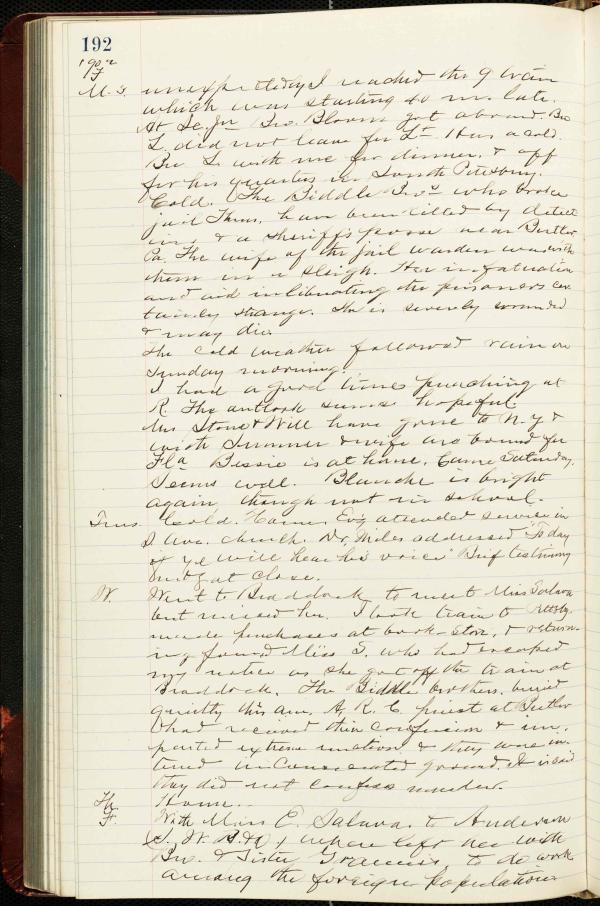 192
1902
F
M. 3. unexpectedly I reached the 9 train
which was starting 40 m. late.
At Jc. Jn Bro. Bloom got aboard. Bro
L. did not leave for L— Has a cold.
Bro L. with me for dinner, & off
for his quarters in South Pittsburg.
Cold. The Biddle Bros who broke
jail Thurs. have been killed by detect
ives & a sheriff's posse near Butler
Pa. The wife of the jail warden was with
them in a sleigh. Her infatuation
and aid in liberating the prisoners cer
tainly strange. She is severely wounded
& may die.
The cold weather followed rain on
Sunday morning.
I had a good time preaching at
R. The outlook seems hopeful.
Mrs Stone & Will have gone to N.Y &
with Sumner & wife are bound for
Fla Bessie is at home. Came Saturday.
Seems well. Blanche is bright
again, though not in school.
Tues. Cold. Home. Evg attended service in
S Ave. church. Dr. Miles addressed "To day
if ye will hear his voice" Brief testimony
meetg at close.
W. Went to Braddock to meet Miss Salava
but missed her. I took train to Pittsbg.
made purchases at book-store, & return-
ing found Miss S. who had escaped
my notice as she got off the train at
Braddock. The Biddle brothers buried
quietly this am. A R. C. priest at Butler
had received their confession & im-
parted extreme unction & they were in-
terred in consecrated ground. It is said
they did not confess murder.
Th. Home.
F. With Miss E. Salava to Anderson
where left her with
Bro. & Sister to do work
among the foreign population